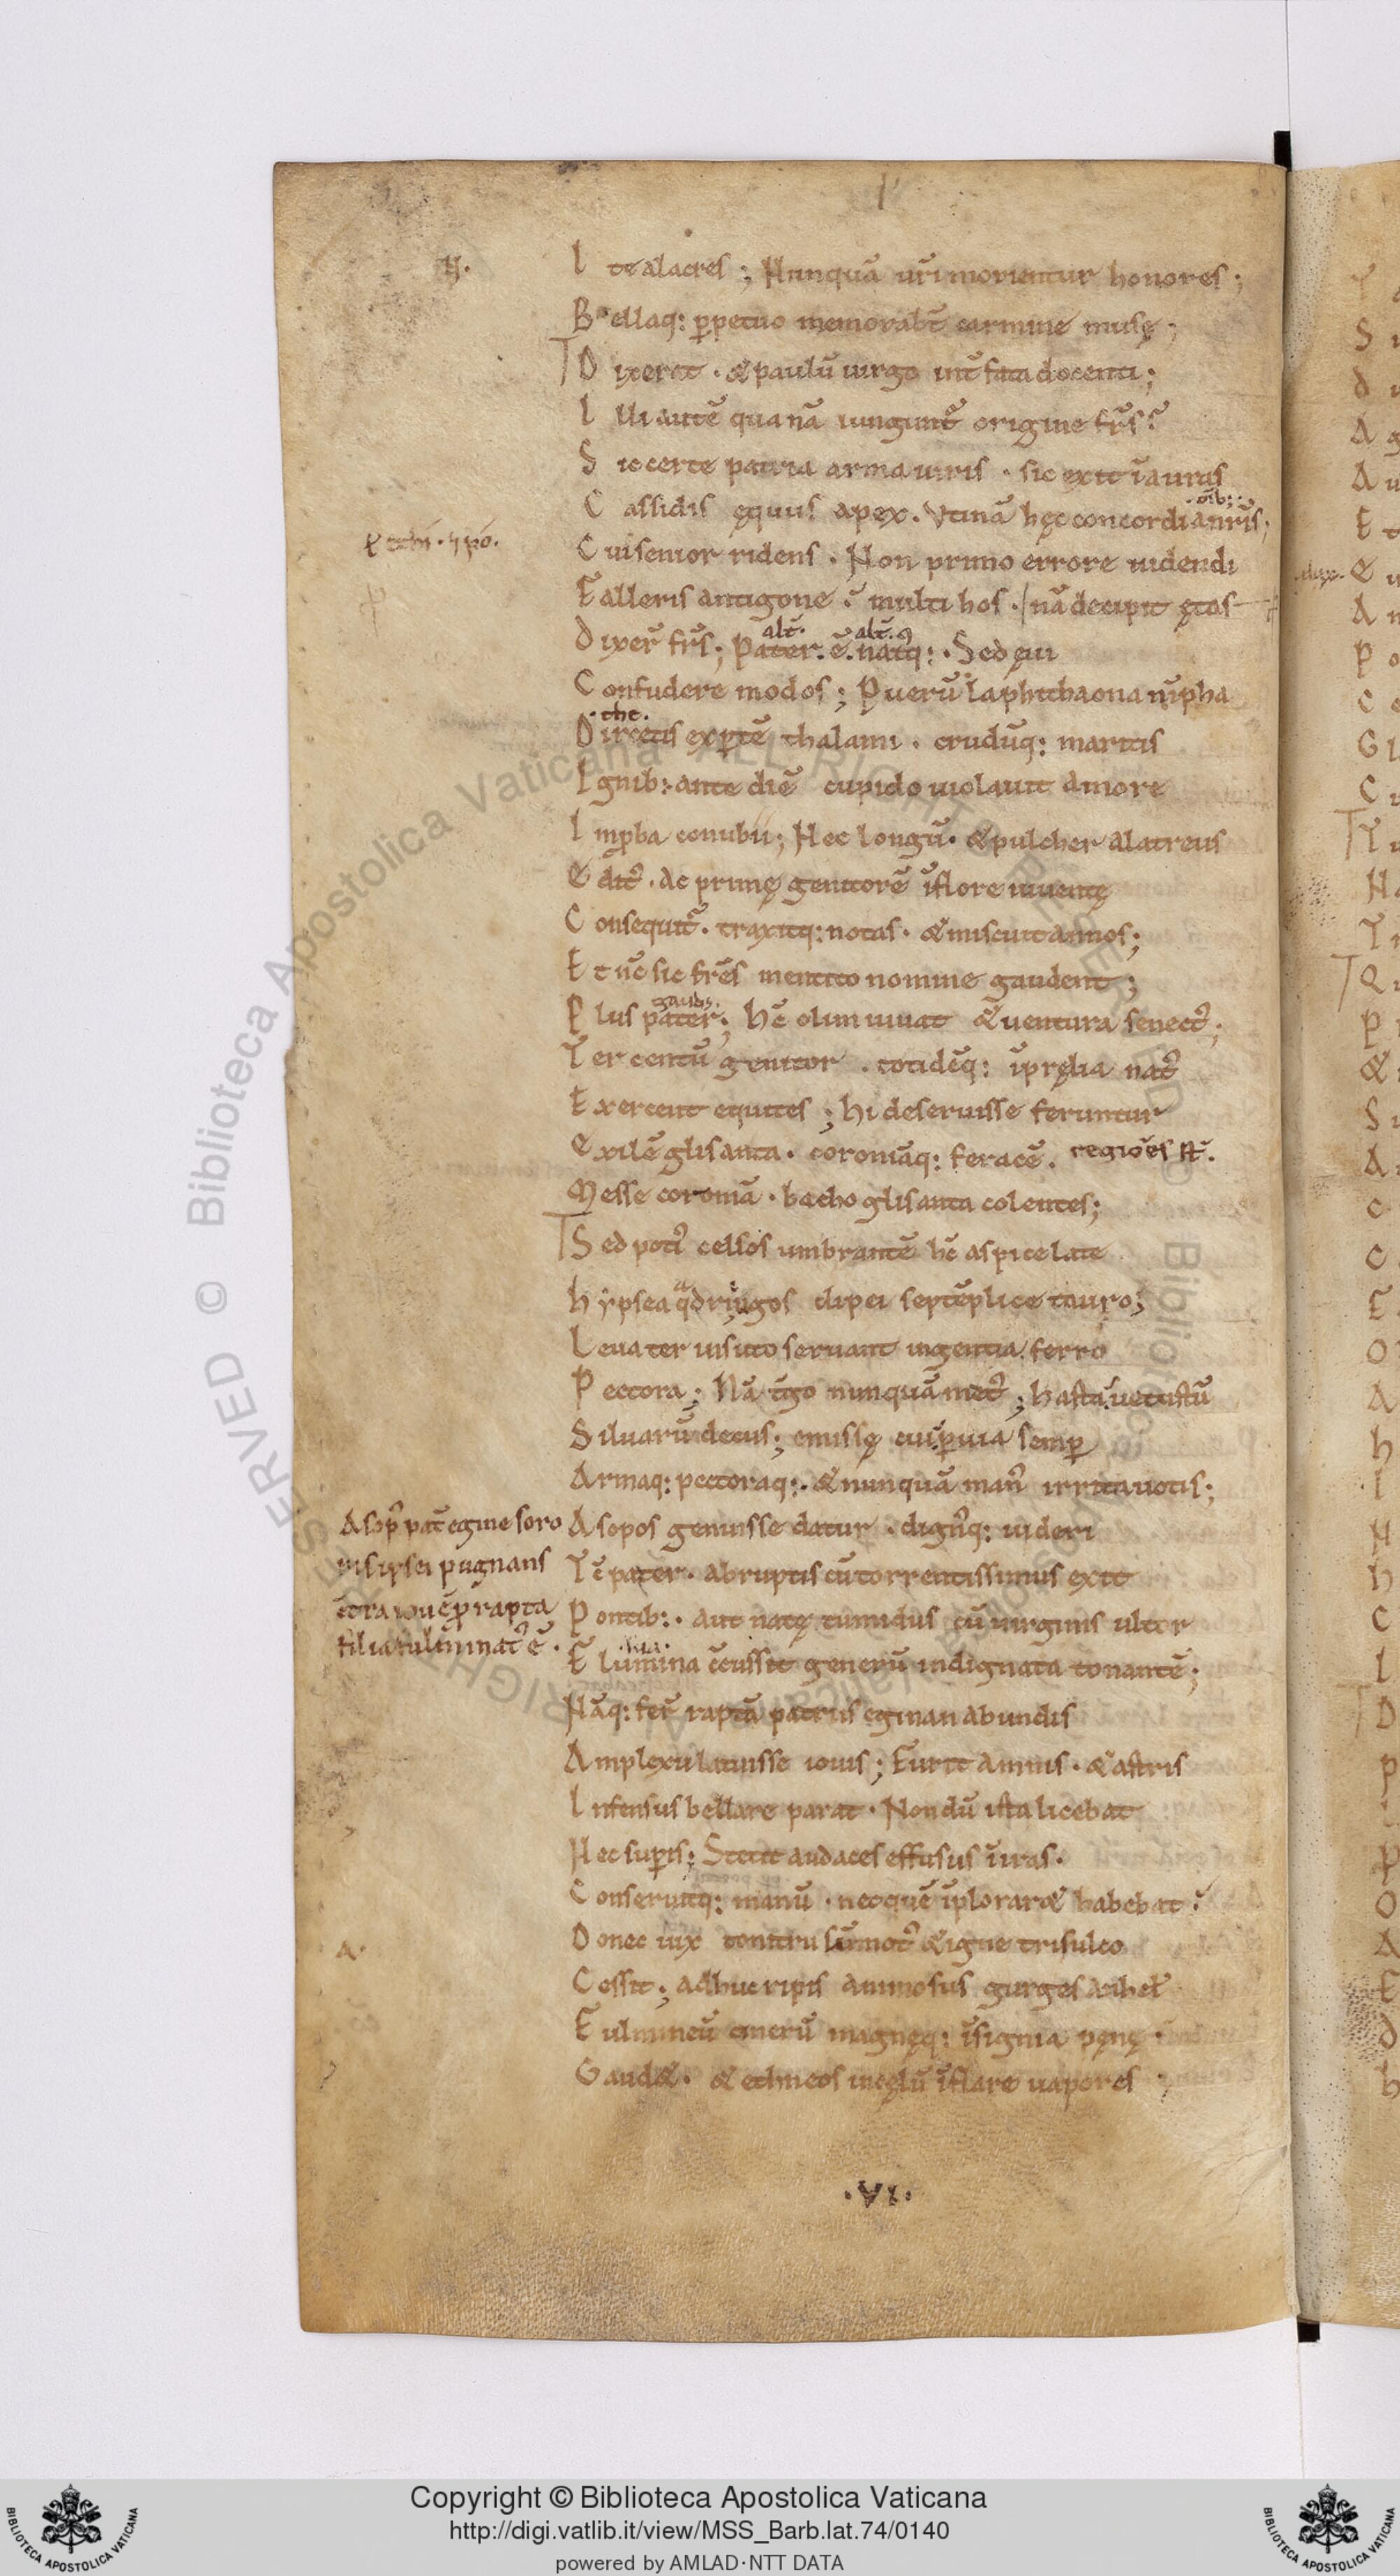 I te alacres ; Nunquā ur̄i morientur honores ;
Bellaq: ꝑpetuo memorabt̄ carmine musę ;
D ixerat . & paulū uirgo int̄ fata docenti ;
I lli autē qua nā iungunt᷑ origine fr̄s ?
S ic certe patria arma uiris . sic exit ī auras
C assidis ęquus apex . Vtinā hęc concordia nr̄is ;
C ui senior ridens . Non primo errore uidendi
F alleris antigone ? multi hos . nā decipit ętas
alt̄. alt̄.
D ixer̄ fr̄s ; Pater . ē . natq: . Sed ęui
C onfudere modos ; Puerū laphithaona nīpha
the.
D ircetis exꝑtē thalami . crudūq: maritis
I gnib: ante diē cupido uiolauit amore
I mꝓba conubii ; Nec longū . & pulcher alatreus
E dit᷑ . Ac primę genitorē ī flore iuuentę
C onsequit᷑ . traxitq: notas . & miscuit annos ;
E t nc̄ sic fr̄es mentito nomine gaudent ;
P lus pater ; hc̄ olim iuuat & uentura senect᷒ ;
T er centū genitor . totidēq: ī pręlia nat᷒
E xercent equites ; hi deseruisse feruntur
E xilē glisanta . coroniāq: feracē . regiōes st̄.
M esse coroniā . bacho glisanta colentes ;
S ed poti᷒ celsos umbrantē hc̄ aspice late
h ypsea qadriiugos clipei septēplice tauro ;
L eua ter insuto seruant ingentia ferro
P ectora ; Nā t̄go nunquā met᷒ ; hasta uetustū
S iluarū decus ; emissę cui ꝑuia semꝑ
A rmaq: pectoraq: . & nunquā man᷒ irrita uotis ;
A sopos genuisse datur . dign᷒q: uideri
T c̄ pater . abruptis cū torrentissimus exit
P ontib: . aut natę tumidus cū uirginis ultor
F lumina c̄cussit generū indignata tonantē ;
N āq: fer̄ raptā patriis eginan ab undis
A mplexu latuisse iouis ; Furit amnis . & astris
I nfensus bellare parat . Nondū ista licebat
N ec suꝑis ; Stetit audaces effusus ī iras .
C onseruitq: manū . nec quē īplorar& habebat ?
D onec uix tonitru sūmot᷒ & igne trisulco
C essit ; adhuc ripis animosus gurges anhel᷒
F ulmineū cinerū magnęq: īsignia pęnę .
G aud& . & ethneos in cęlū īflare uapores
Asop᷒ pat̄ egine soro
ris ipsei pugnans
c̄tra ioue ꝓ rapta
filia fulminat᷒ ē .
. VI .
Copyright © Biblioteca Apostolica Vaticana
http://digi.vatlib.it/view/MSS_Barb.lat.74/0140
powered by AMLAD·NTT DATA